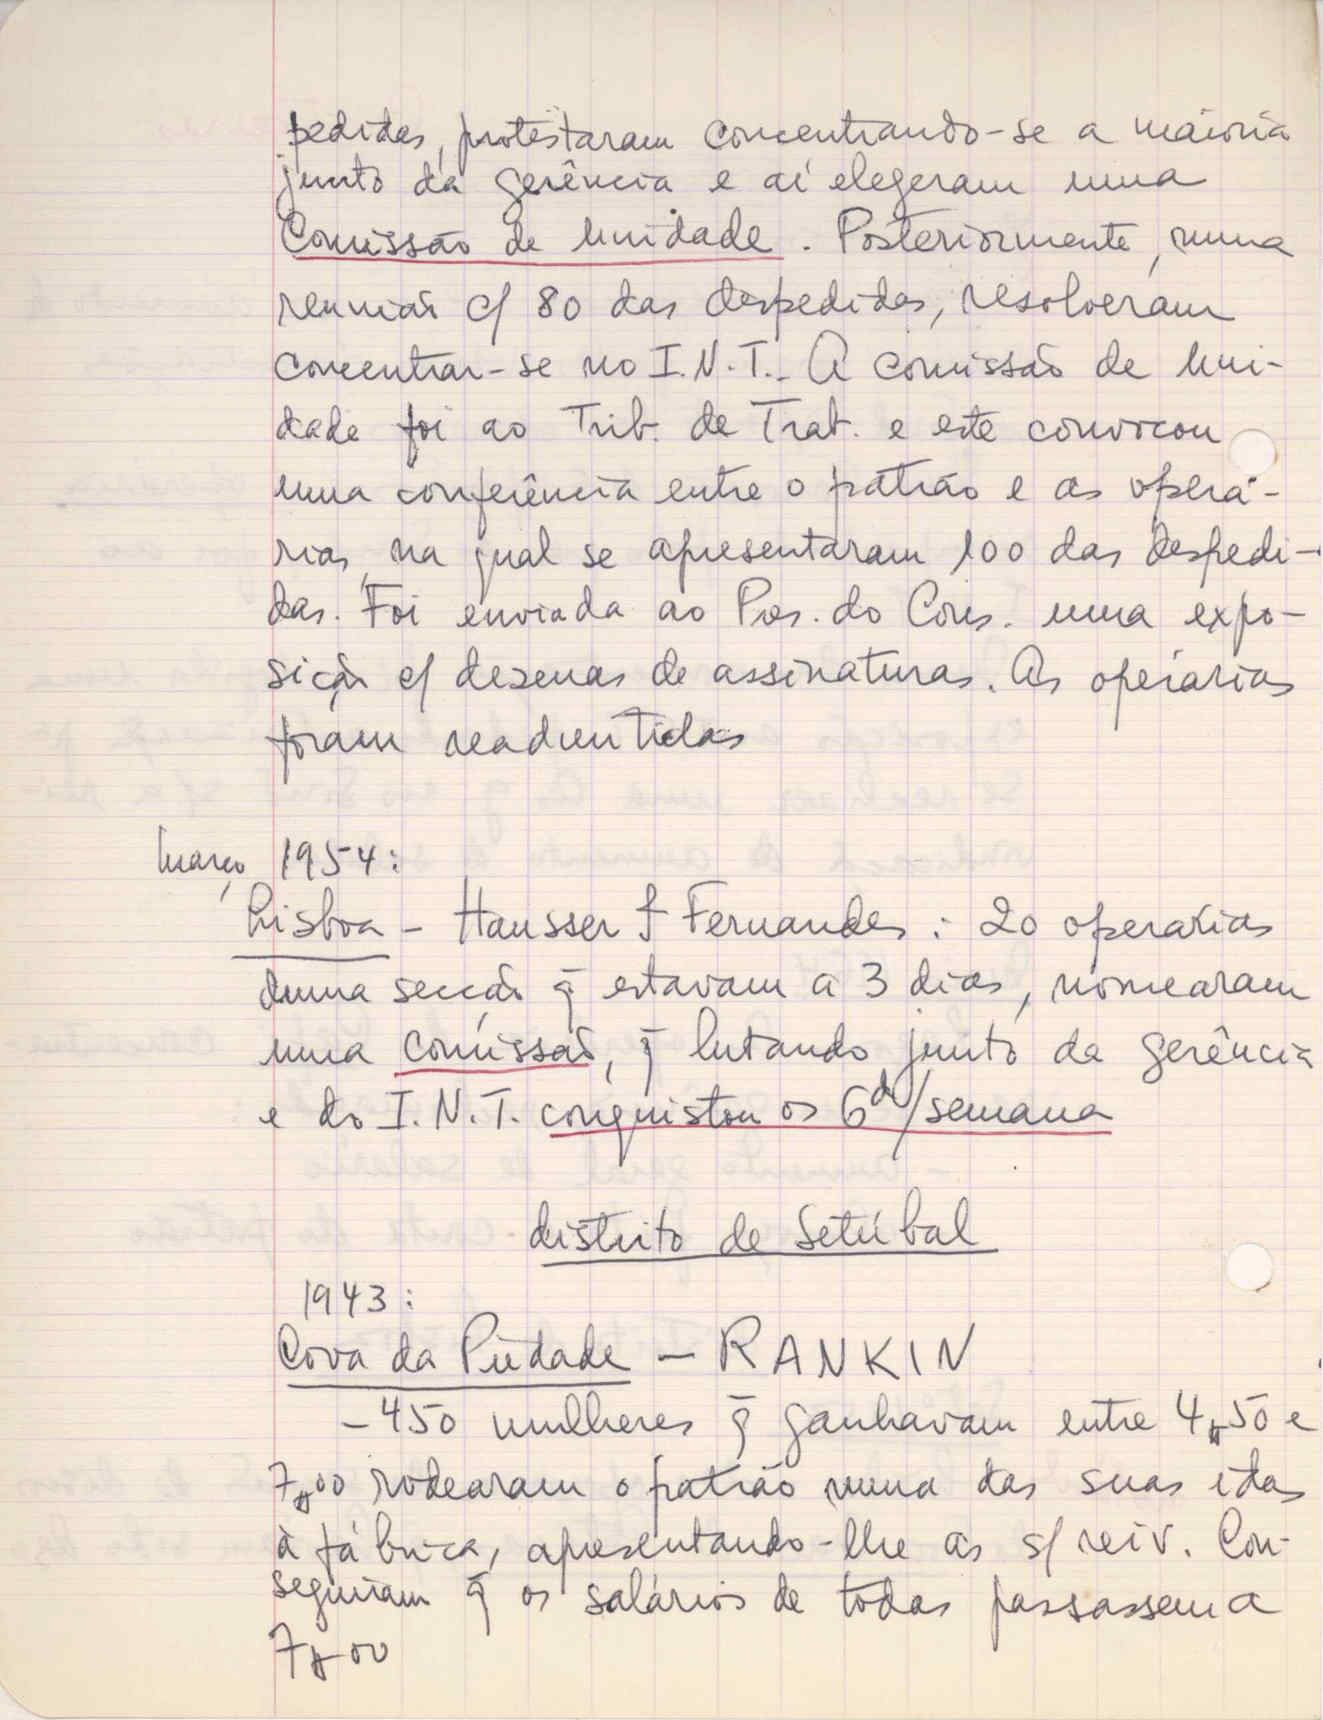 pedidas, protestaram concentrando-se a maioria
junto da gerência e aí elegeram uma
Comissão de Unidade. Posteriormente, numa
reunião c/ 80 das despedidas, resolveram
concentrar-se no I.N.T.. A comissão de Uni-
dade foi ao Trib. de Trab. e este convocou
uma conferência entre o patrão e as operá-
rias, na qual se apresentaram 100 das despedi-
das. Foi enviada ao Pres. do Cons. uma expo-
sição c/ dezenas de assinaturas. As operárias
foram readmitidas
Março 1954:
Lisboa - Hausser & Fernandes: 20 operárias
duma secção q̃ estavam a 3 dias, nomearam
uma comissão, q̃ lutando junto da gerência
e do I.N.T. conquistou os 6d/semana
distrito de Setúbal
1943:
Cova da Piedade - RANKIN
- 450 mulheres q̃ ganhavam entre 4$50 e
7$00 rodearam o patrão numa das suas idas
à fábrica, apresentando-lhe as s/ reiv. Con-
seguiram q̃ os salários de todas passassem a
7$00